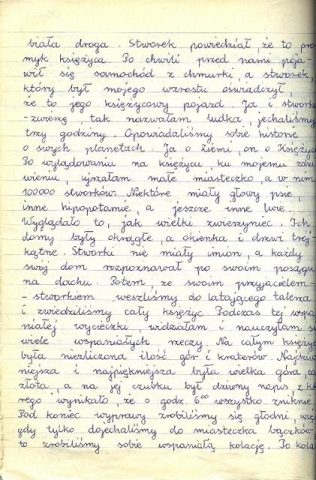 biała droga. Stworek powiedział że to pro
myk księżyca. Po chwili przed nami poja-
wił się samochód z chmurki, a stworek,
który był mojego wzrostu oświadczył,
że to jego księżycowy pojazd. Ja i stwork
-zwerzę, tak nazwałam ludka, jechaliśmy
trzy godziny. Opowiadaliśmy sobie historie
o swych planetach. Ja o Ziemi, on o Księżyc
Po wylądowaniu na księżycu, ku mojemu zdzi
wieniu, ujrzałam małe miasteczko, a w nim
100000 stworków. Niektóre miały głowy psie,
inne hipopotamie, a jeszcze inne lwie.
Wyglądało to, jak wielki zwierzyniec. Ich
domy były okrągłe, a okienka i drzwi trój
kątne. Stworki nie miały imion, a każdy
swój dom rozpoznawał po swoim posągu
na dachu. Potem, ze swoim przyjacielem-
- stworkiem, weszliśmy do latającego talerza
i zwiedzaliśmy cały księżyc. Podczas tej wspa
niałej wycieczki, widziałam i nauczyłam się
wiele wspaniałych rzeczy. Na całym księżyc
była niezliczona ilość gór i kraterów. Najdziw
niejsza i najpiękniejsza była wielka góra ca
złota, a na jej czubku był dziwny napis z któ
rego wynikało, że o godz. 6⁰⁰ wszystko zniknie.
Pod koniec wyprawy zrobiliśmy się głodni, więc
gdy tylko dojechaliśmy do miasteczka bączków-
to zrobiliśmy sobie wspaniałą kolację. Po kola